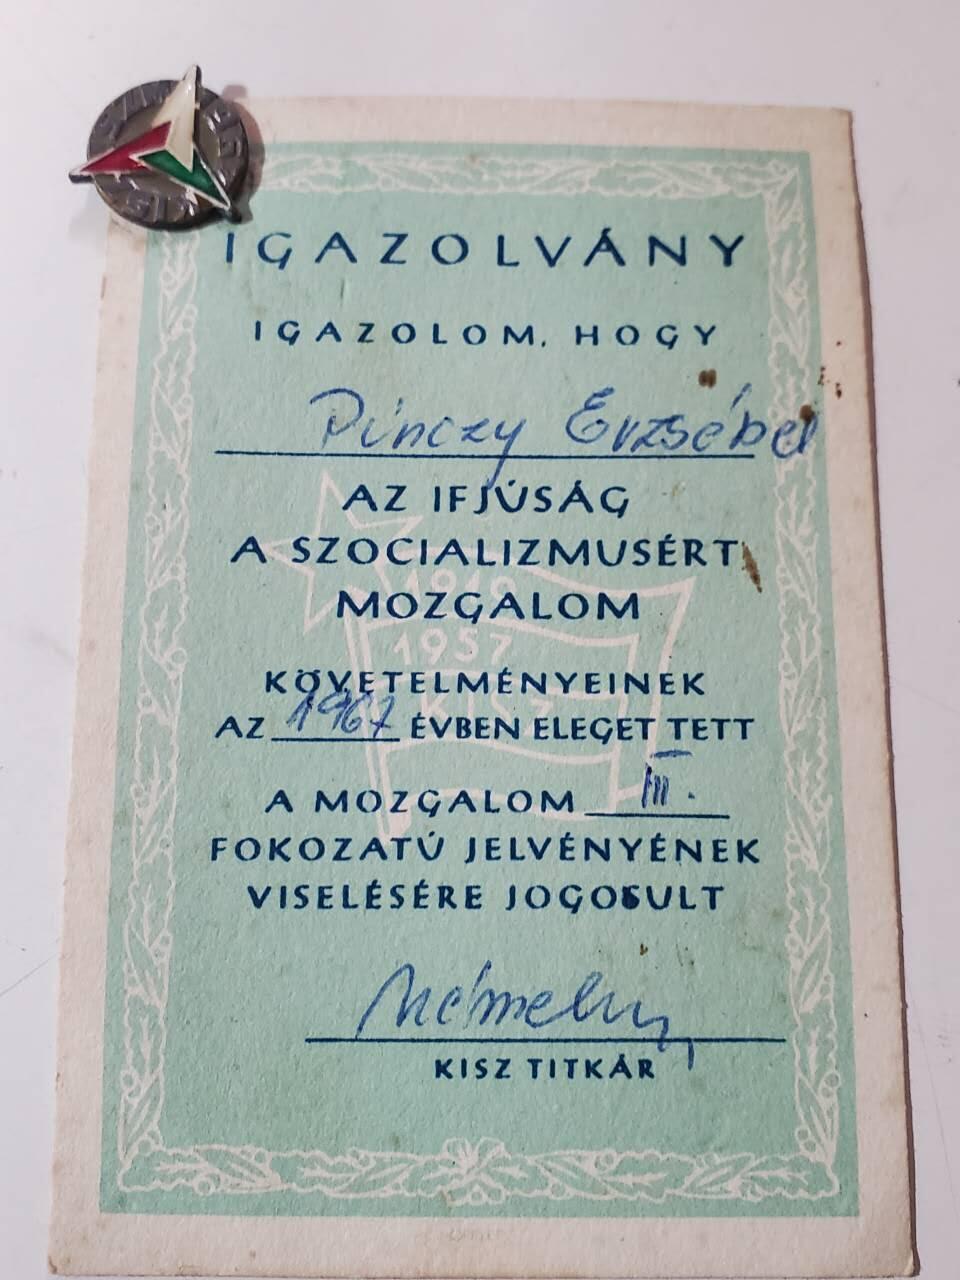 IGAZOLVÁNY
IGAZOLOM, HOGY
Pinczy Erzsébet
AZ IFJÚSÁG
A SZOCIALIZMUSÉRT
MOZGALOM
1919
1957
KÖVETELMÉNYEINEK
KISZ
AZ 1967 ÉVBEN ELEGET TETT
A MOZGALOM III.
FOKOZATÚ JELVÉNYÉNEK
VISELÉSÉRE JOGOSULT
KISZ TITKÁR